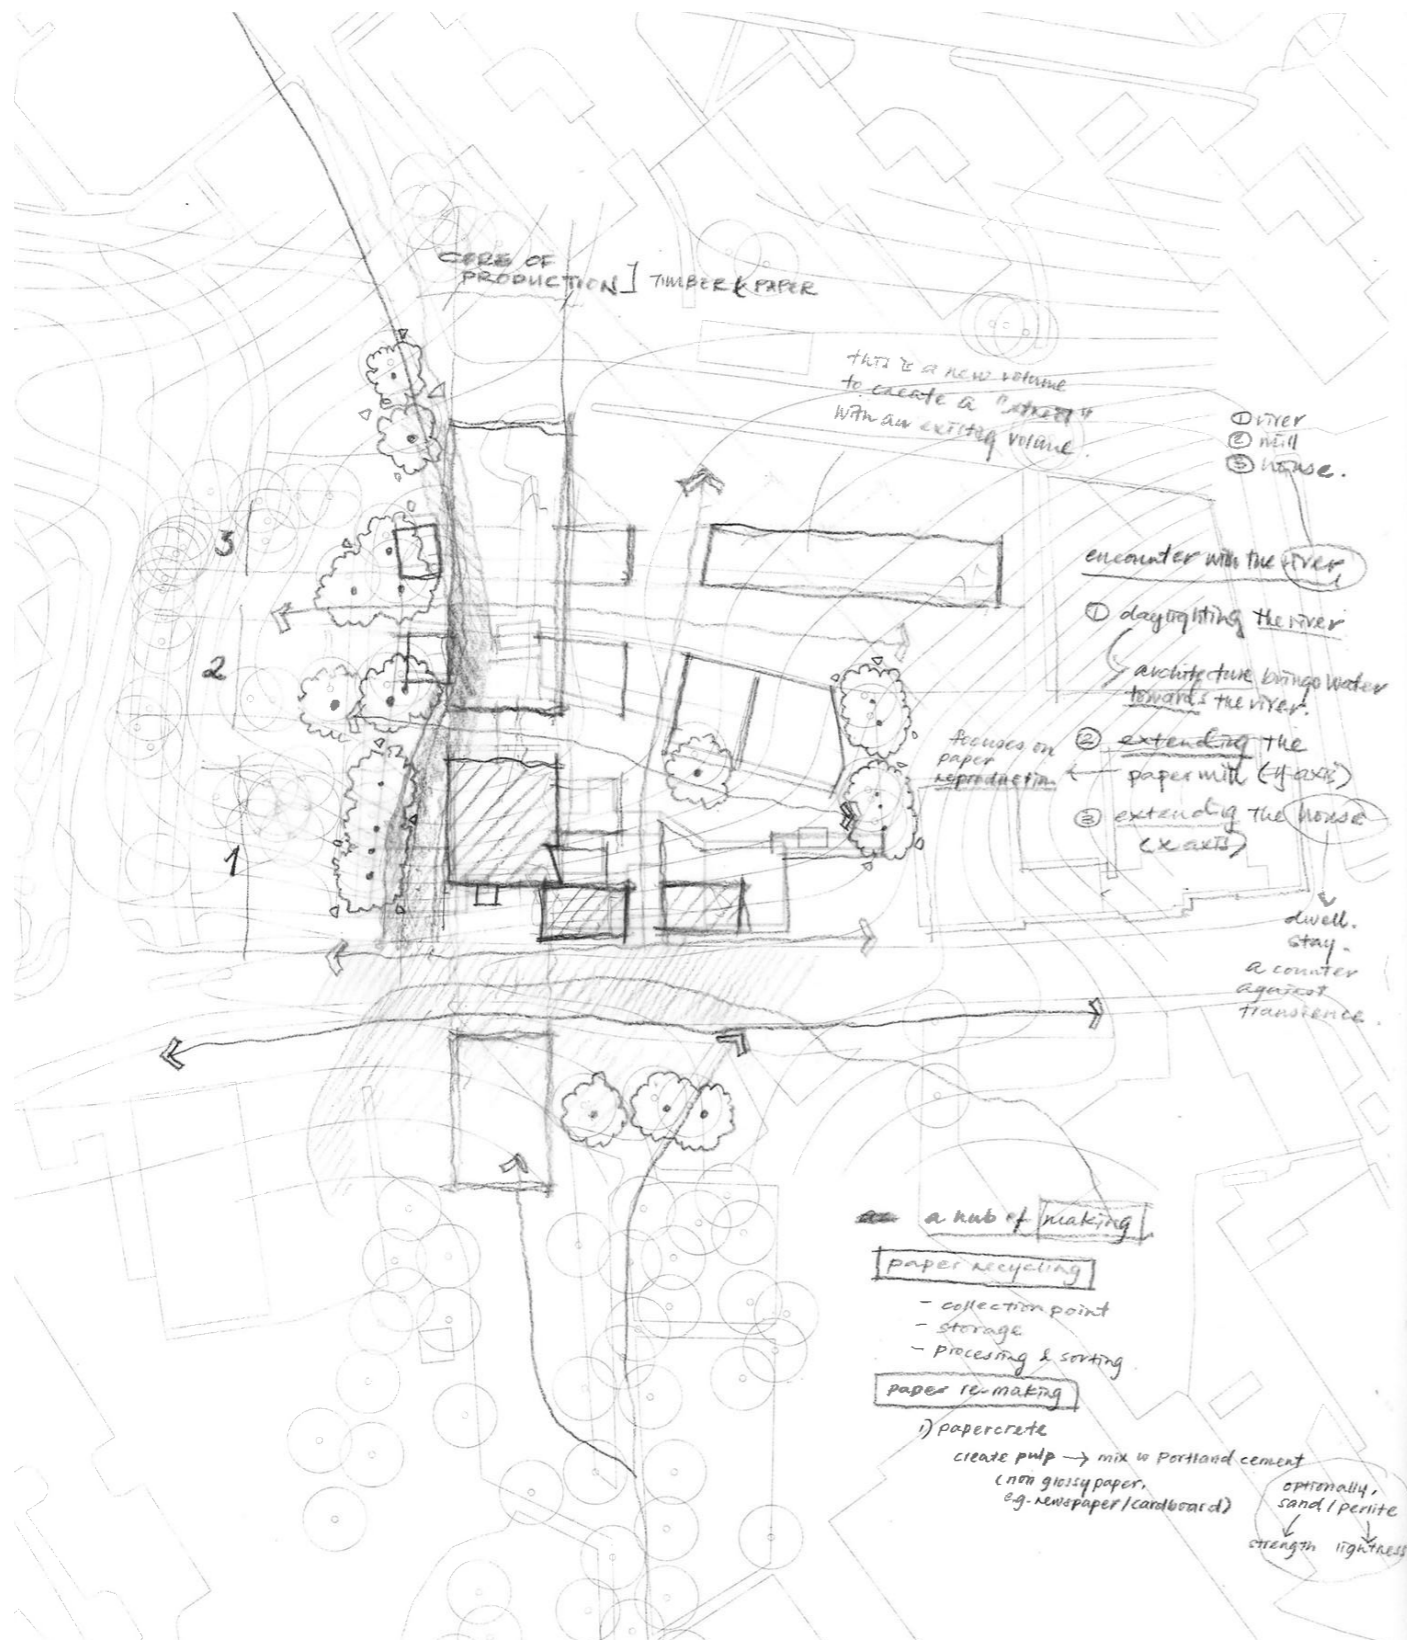 CORE OF
PRODUCTION] TIMBER & PAPER
this is a new volume
to create a "street"
with an existing volume.
① river
② mill
③ house.
3
2
1
encounter with the river
① daylighting the river
architecture brings water
towards the river.
② extending the
paper mill (-y-axis)
focuses on
paper
reproduction
③ extending the house
(x axis)
dwell.
stay.
a counter
against
transience.
a hub of making
paper recycling
- collection point
- storage
- processing & sorting.
paper re-making
1) papercrete
create pulp → mix w Portland cement
(non glossy paper,
e.g. newspaper/cardboard)
optionally,
sand / perlite
strength lightness